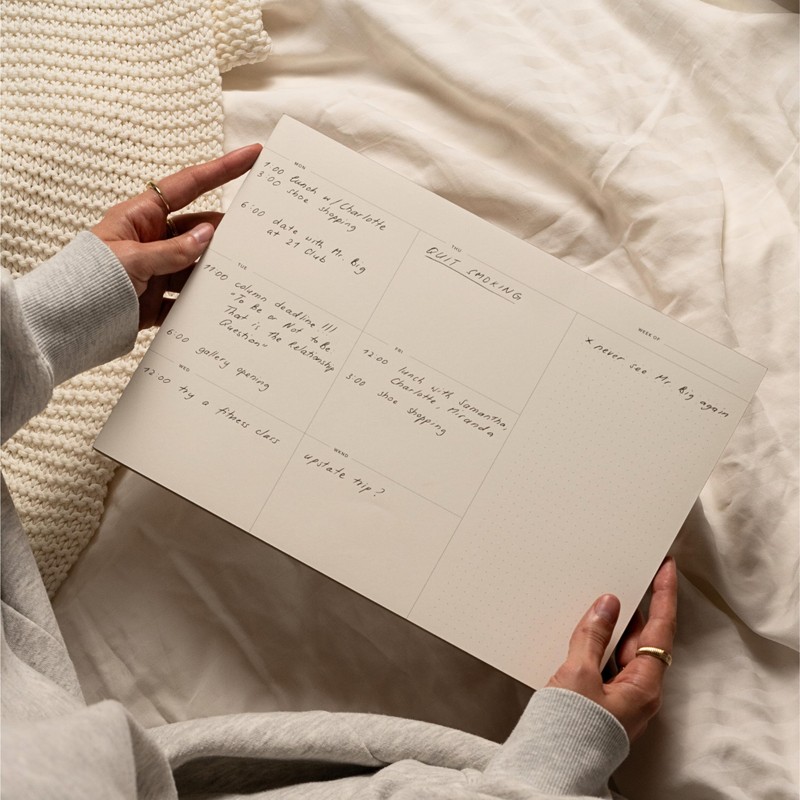 MON
1:00 lunch w/ Charlotte
3:00 shoe shopping
6:00 date with Mr. Big
at 21 Club
TUE
11:00 column deadline !!!
"To Be or Not to Be.
That is the Relationship
Question"
6:00 gallery opening
WED
12:00 try a fitness class
THU
QUIT SMOKING
FRI
12:00 lunch with Samantha,
Charlotte, Miranda
3:00 shoe shopping
WKND
upstate trip?
WEEK OF
* never see Mr Big again